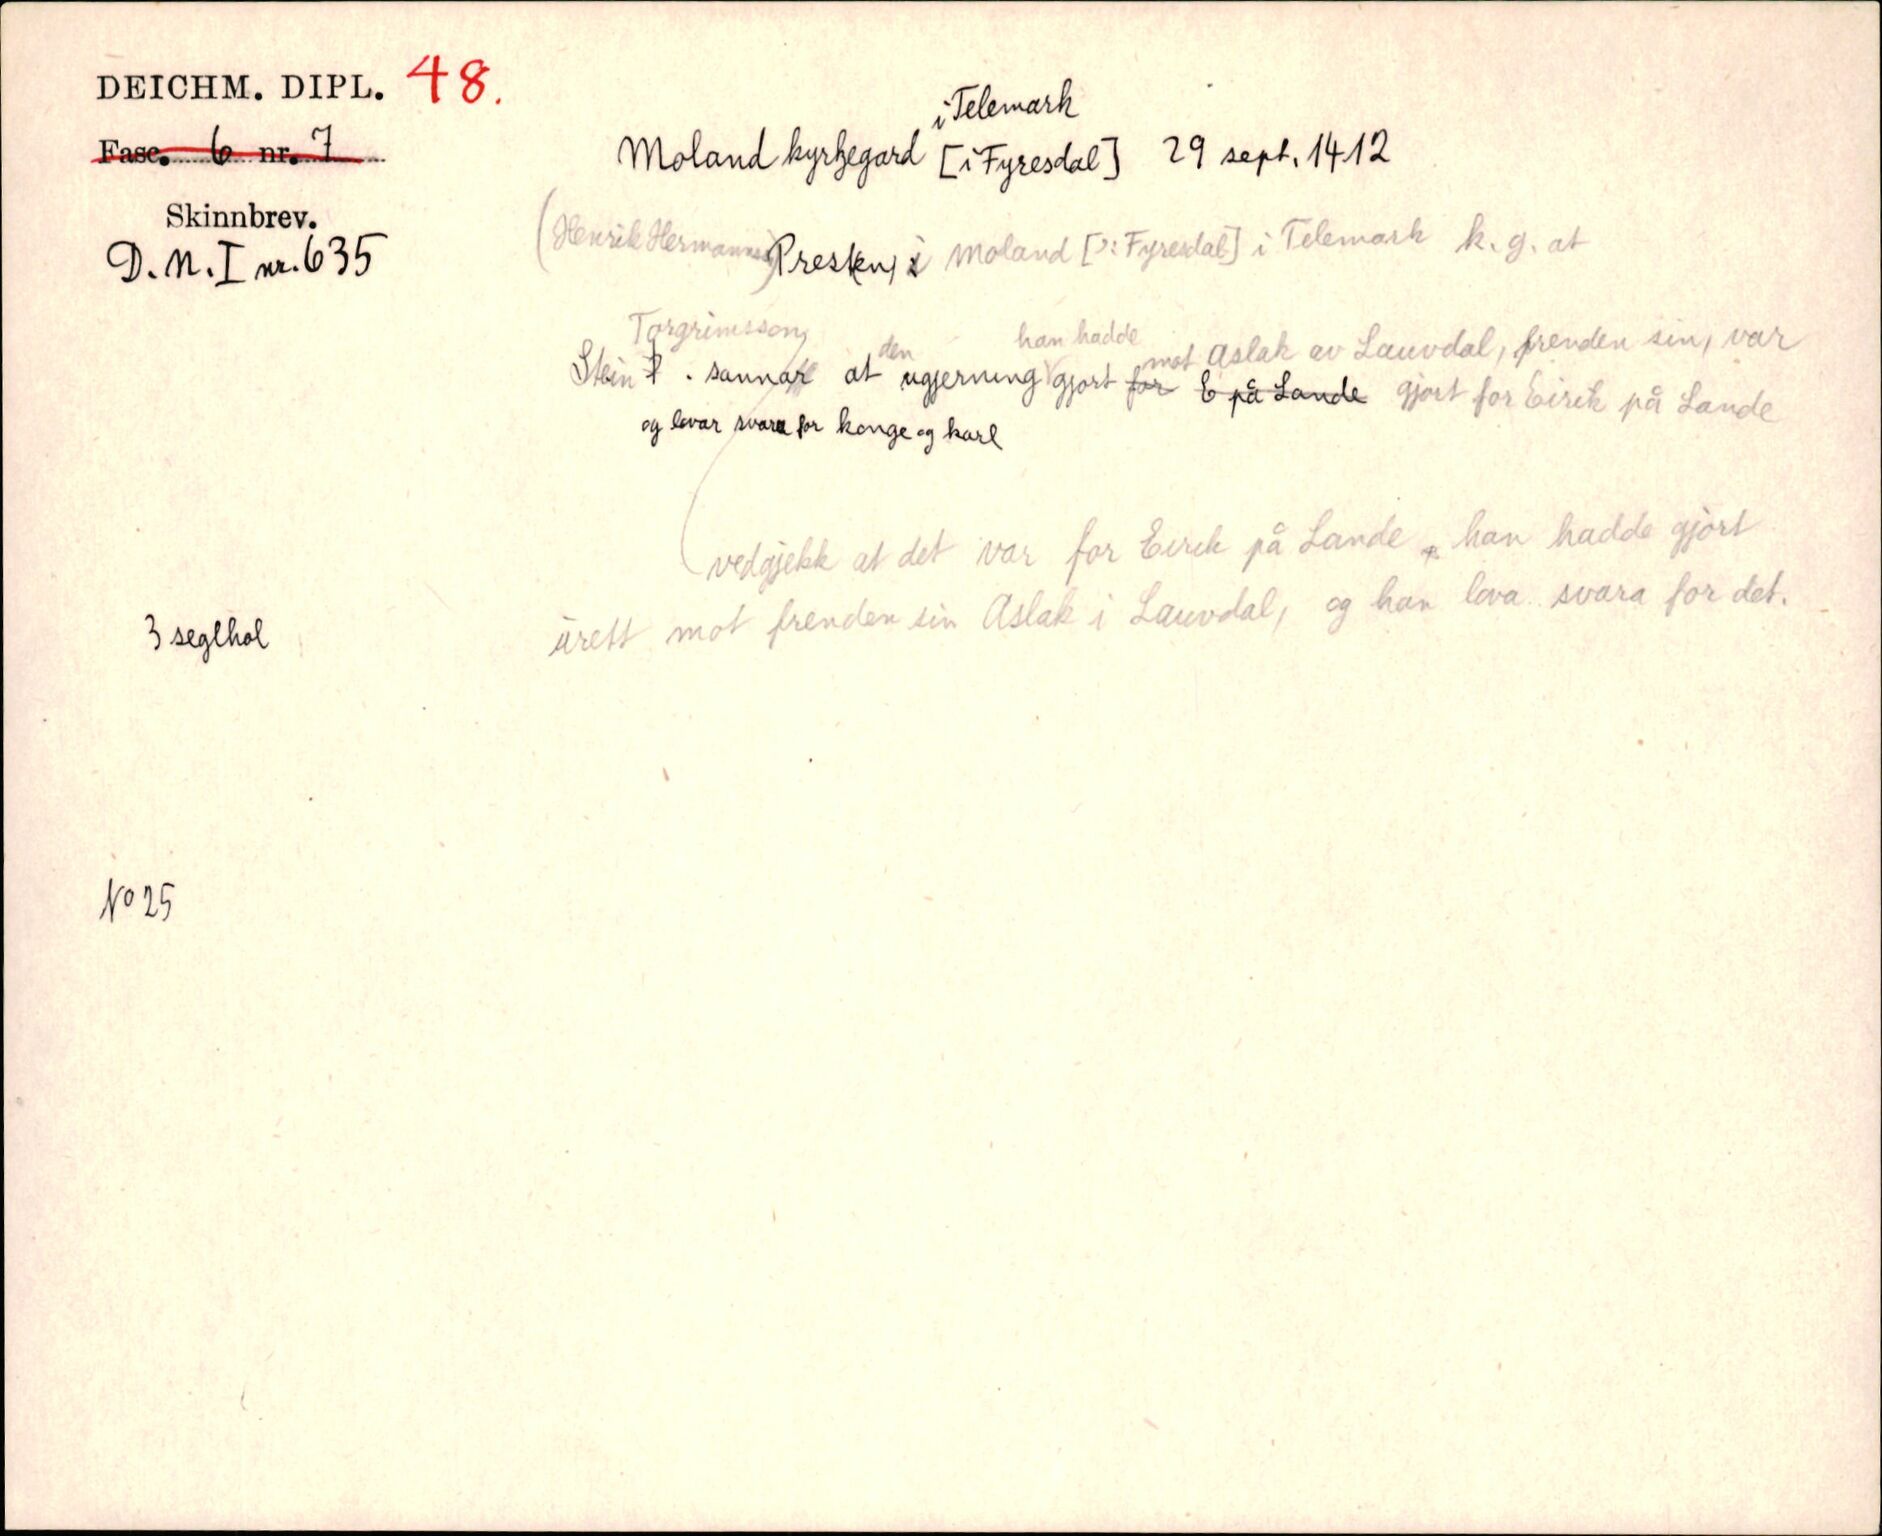 DEICHM. DIPL. 48.
Fasc. 6 nr. 7
Skinnbrev.
D.N. I nr. 635
i Telemark
Moland kyrkjegard [i Fyresdal] 29 sept. 1412
(Henrik Hermannss) Prest(en) i Moland [ɔ: Fyresdal] i Telemark k. g. at
Torgrimsson, den han hadde
Stein T. sannar at ugjerning gjort for mot Aslak av Lauvdal, frenden sin, var
E på Lande gjort for Eirik på Lande
og lovar svara for konge og karl
vedgjekk at det var for Eirik på Lande han hadde gjort
urett mot frenden sin Aslak i Lauvdal, og han lova svara for det.
3 seglhol
No 25